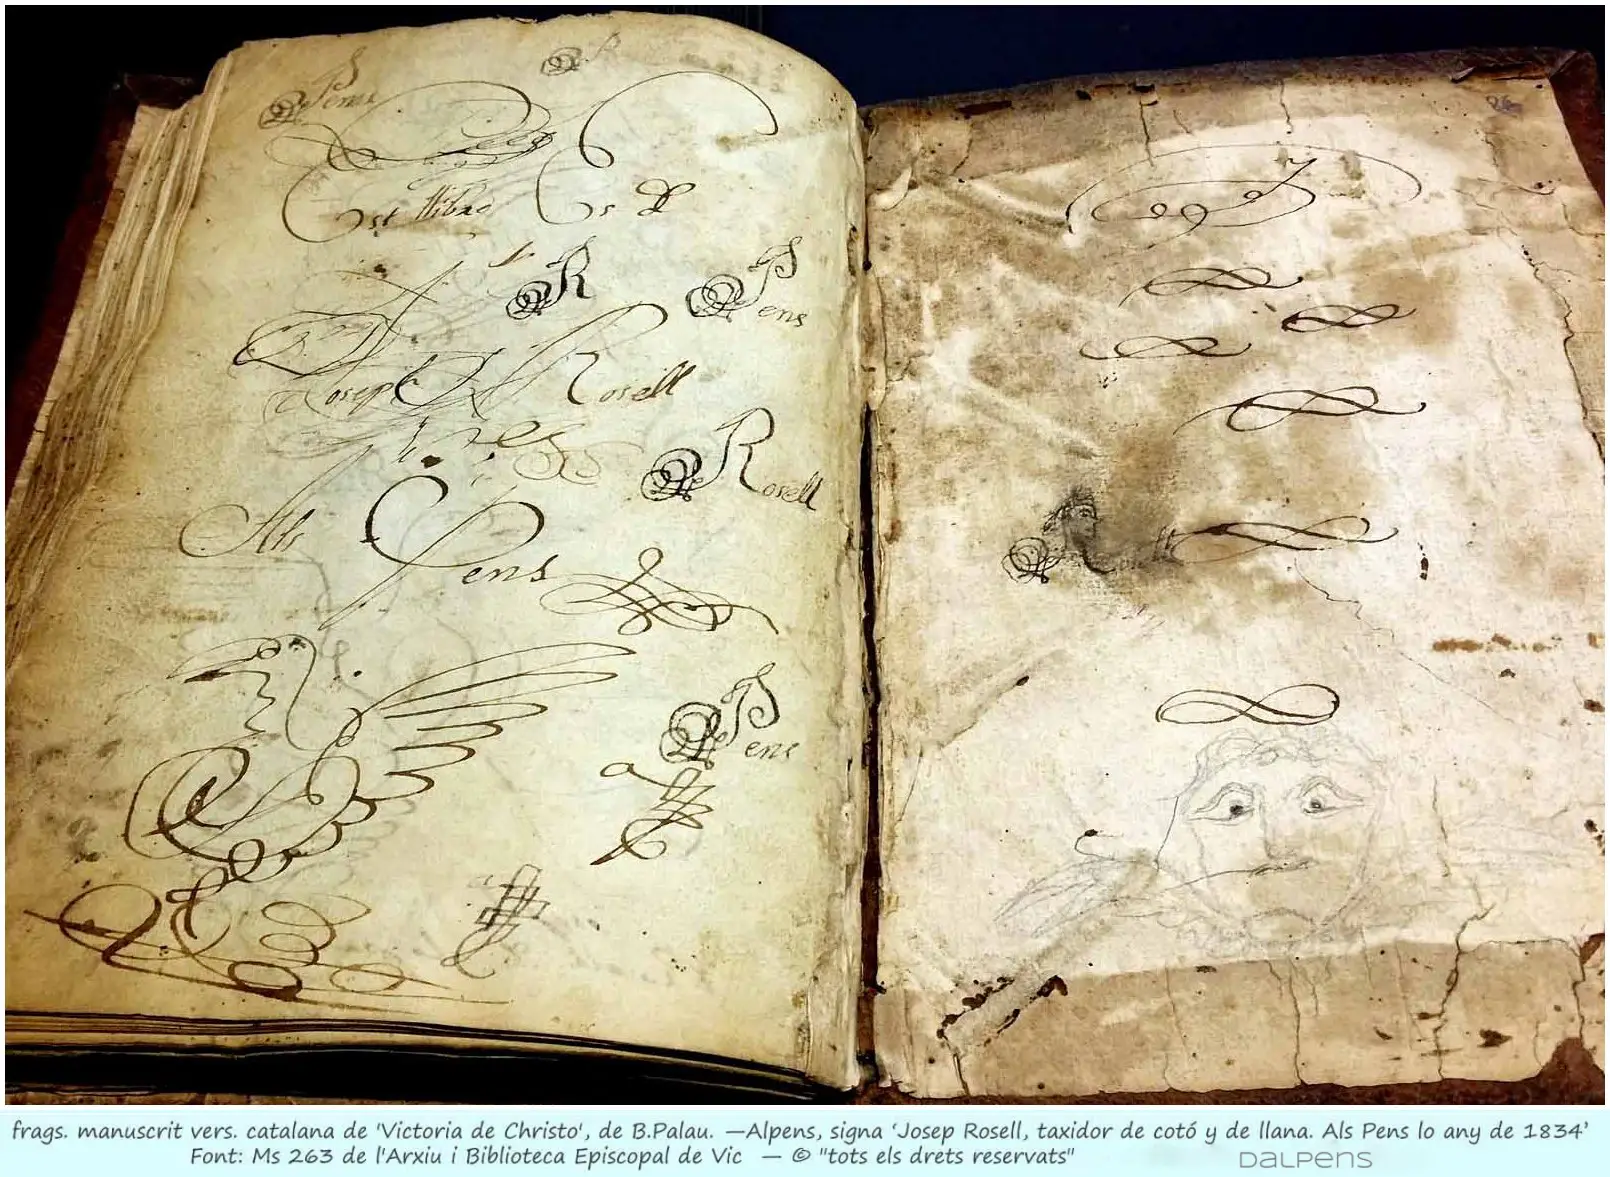 Pens
R
Est llibre Es de
R
Pens
Joseph Rosell
Rosell
Als Pens
Pens
frags. manuscrit vers. catalana de 'Victoria de Christo', de B.Palau. —Alpens, signa ‘Josep Rosell, taxidor de cotó y de llana. Als Pens lo any de 1834’
Font: Ms 263 de l'Arxiu i Biblioteca Episcopal de Vic — © "tots els drets reservats"
DALPENS